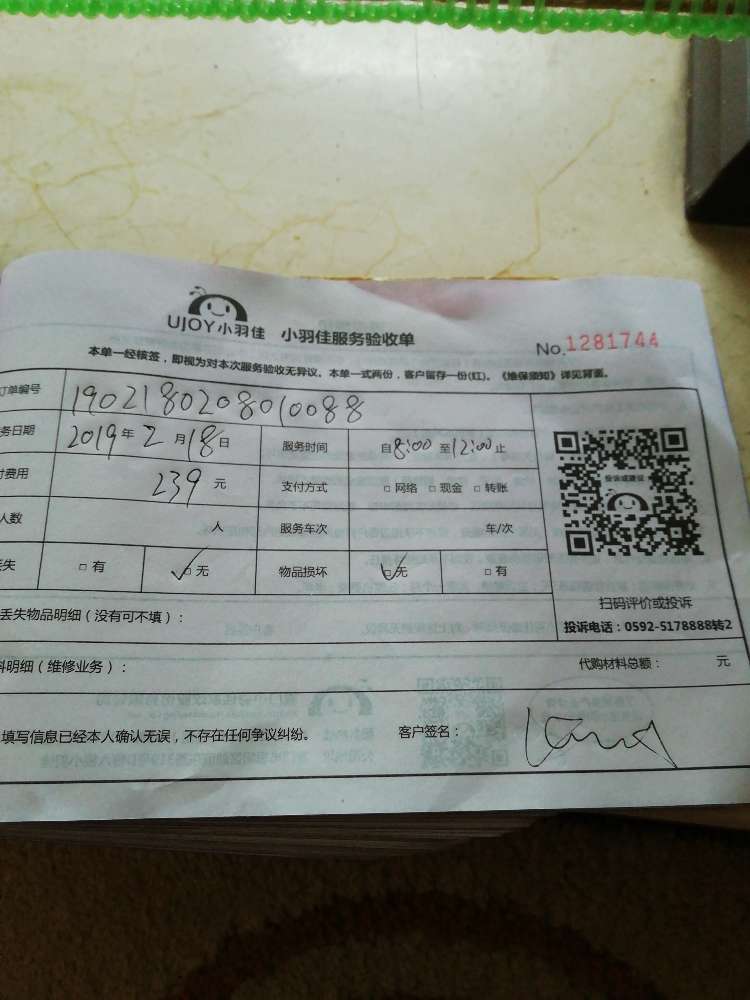 UJOY小羽佳 小羽佳服务验收单
No.1281744
本单一经核签，即视为对本次服务验收无异议。本单一式两份，客户留存一份(红)。《维保须知》详见背面。
订单编号 1902180208010088
务日期 2019年2月18日 服务时间 自8:00至12:00止
付费用 239元 支付方式 □网络 □现金 □转账
人数 人 服务车次 车/次
丢失 □有 □无 物品损坏 □无 □有
投诉或建议
扫码评价或投诉
投诉电话：0592-5178888转2
丢失物品明细（没有可不填）：
料明细（维修业务）： 代购材料总额： 元
填写信息已经本人确认无误，不存在任何争议纠纷。 客户签名：